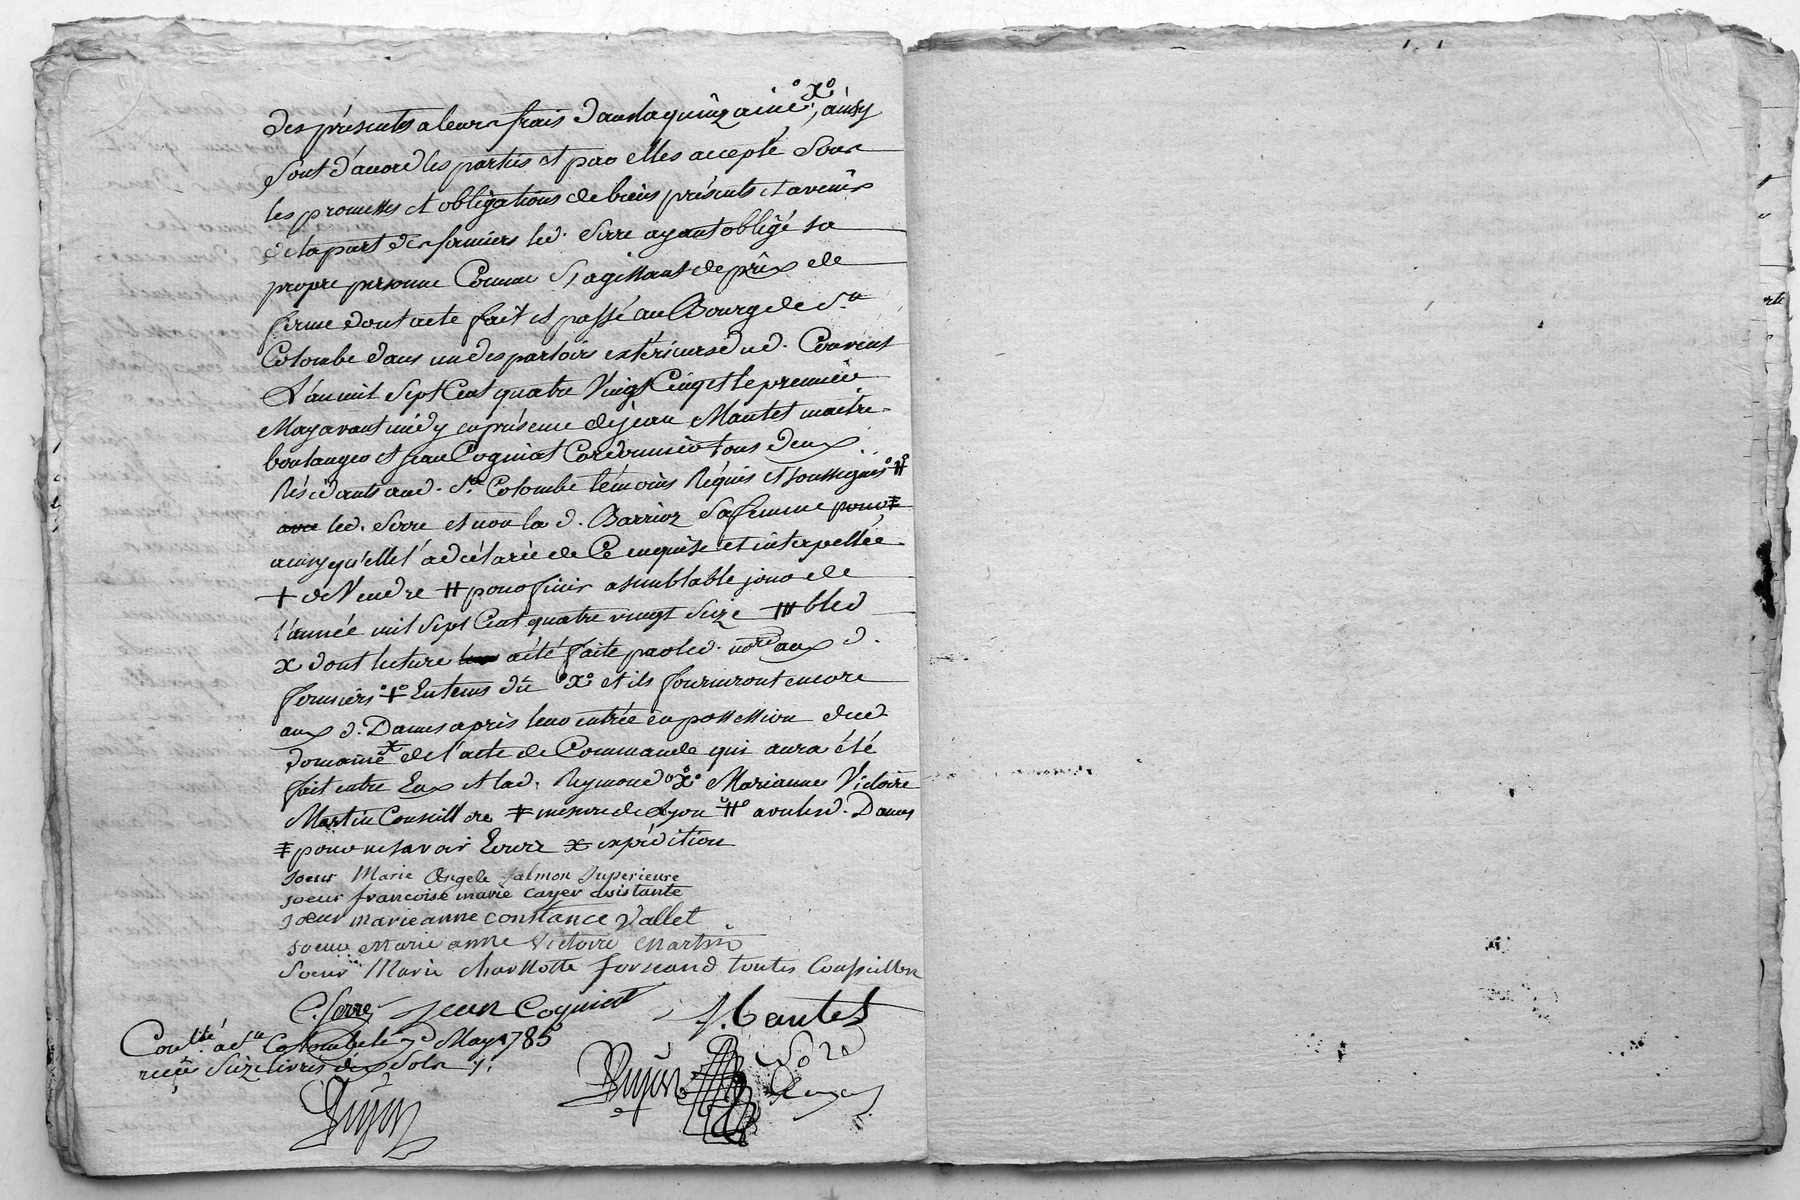 des présentes a leurs frais dans la quinzaine °x°, ainsy
sont d'accord les parties et par elles accepté sous
les promesses et obligations de biens présents et avenir
et la part des fermiers led. Serre ayant obligé sa
propre personne Comme s'agissant de prix de
ferme dont acte fait et passé au Bourg de Ste
Colombe dans un des parloirs extérieurs dud. Couvent
L'an mil Sept Cent quatre Vingt Cinq et le premier
May avant midy en présence de jean Mantet maitre
boulanger et jean Cogniat Cordonnier tous deux
Résidants aud. Ste Colombe témoins Réquis et soussignés °#°
led. Serre et non la d. Barrioz sa femme pour
ainsy qu'elle l'a déclaré de Ce enquise et interpellée
+ de Vendre # pour finir a semblable jour de
l'année mil Sept Cent quatre vingt Seize bled
x dont lecture a été faite par led. nore aux d.
fermiers °+° En tems dû °x° et ils fourniront encore
aux d. Dames apris leur entrée en possession dud
domaine x de l'acte de Commande qui aura été
fait entre Eux et lad. Reymond °x° Marianne Victoire
Martin Conseillere ‡ mesure de Lyon °#° avec lesd. Dames
pour ne savoir Ecrire x expédition
soeur Marie Angele Salmon Superieure
soeur francoise marie Cayer assistante
soeur marieanne constance Vallet
soeur Marie anne Victoire Martin
Soeur Marie Charllotte fornand toutes Conseilleres
C. Serre jean Cogniat J. Mantet
Conllé a Ste Colombe le 7 May 1785
reçu Seize livres dix Sols
Dujon Dujon Nore